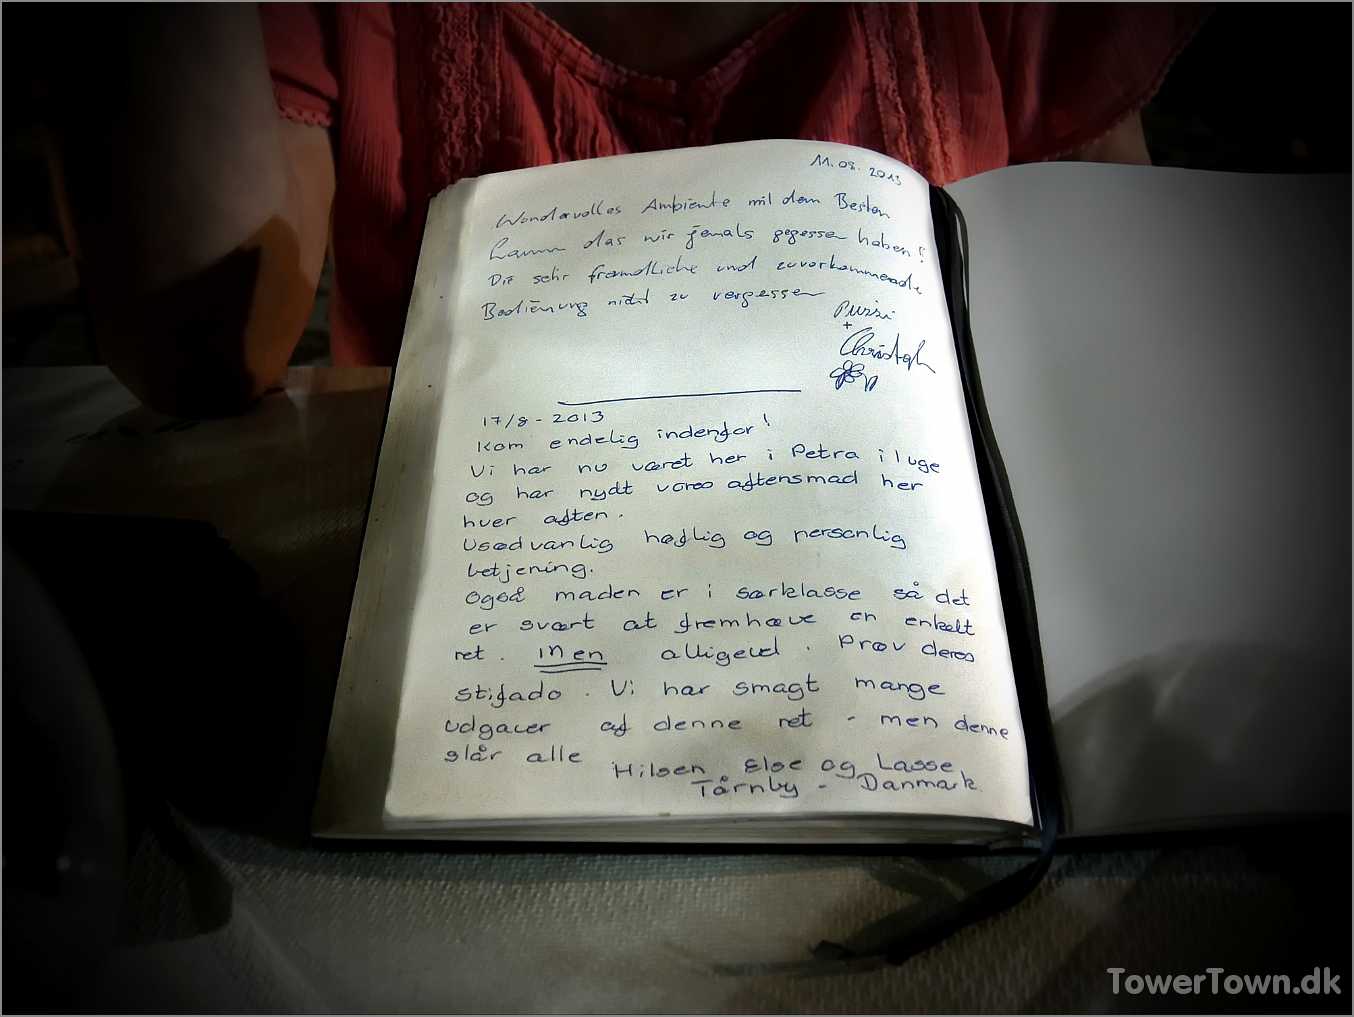 11.08.2013
Wundervolles Ambiente mit dem Besten
Lamm das wir jemals gegessen haben!
Die sehr freundliche und zuvorkommende
Bedienung nicht zu vergessen
+
Christoph
17/8-2013
Kom endelig indenfor!
Vi har nu været her i Petra i 1 uge
og har nydt vores aftensmad her
hver aften.
Usædvanlig høflig og personlig
betjening.
Også maden er i særklasse så det
er svært at fremhæve en enkelt
ret. men alligevel. Prøv deres
stifado. Vi har smagt mange
udgaver af denne ret - men denne
slår alle
Hilsen Else og Lasse
Tårnby - Danmark.
TowerTown.dk